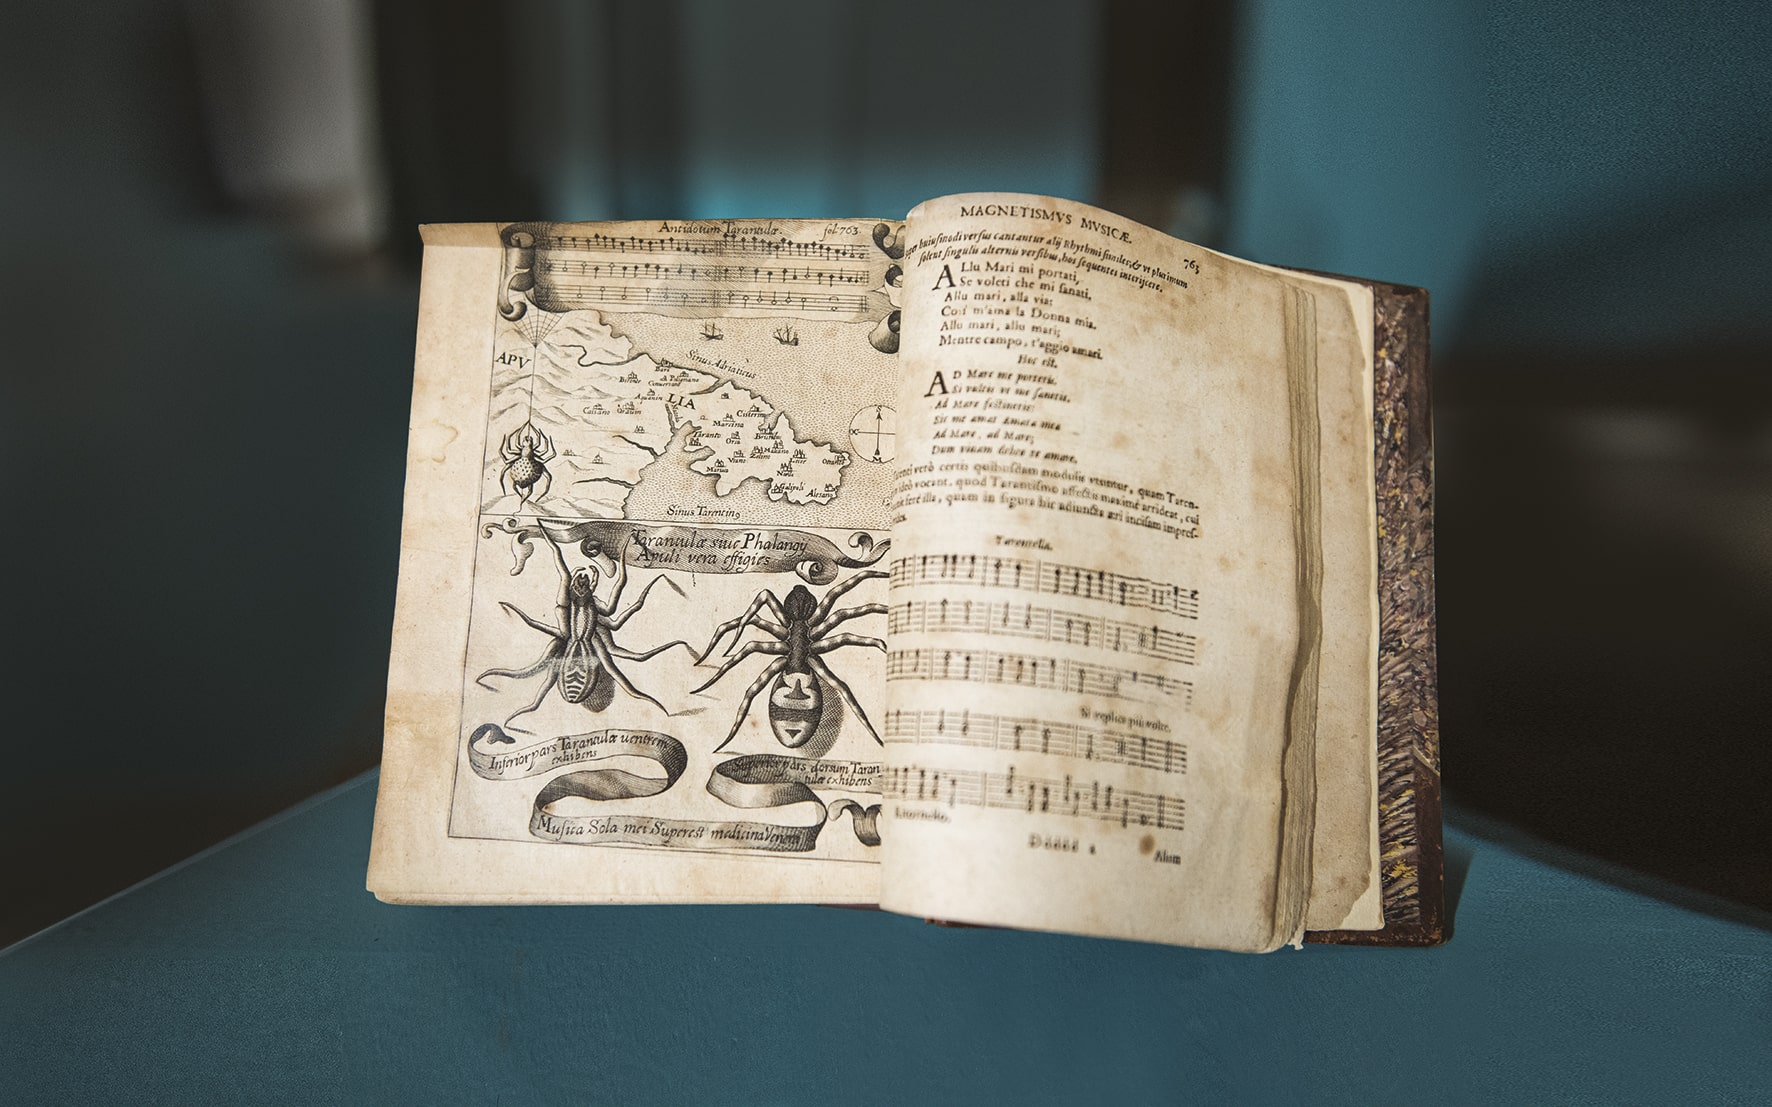 Antidotum Tarantulæ.
fol. 763.
APV
LIA
Sinus Adriaticus
Bari
Polignano
Bitonto
Taranto
Oria
Nardo
Otranto
Gallipoli
Alesano
S
M
Sinus Tarentinꝯ
Tarantulæ siue Phalangÿ
Apuli vera effigies
Inferior pars Tarantulæ uentrem
exhibens
Superior pars dorsum Taran
tulæ exhibens
Musica Sola mei Superest medicina Veneni
MAGNETISMVS MVSICÆ.
763
huiusmodi versus cantantur alij Rhythmi similes, & vt plurimum
solent singulis alternis versibus, hos sequentes interijcere.
ALlu Mari mi portati,
Se voleti che mi ſanati.
Allu mari, alla via:
Coſi m'ama la Donna mia.
Allu mari, allu mari;
Mentre campo, t'aggio amari.
Hoc eſt.
AD Mare me portetis.
Si vultis vt me ſanetis.
Ad Mare feſtinetis:
Sic me amat Amata mea
Ad Mare, ad Mare;
Dum viuam debeo te amare.
verò certis quibuſdam modulis vtuntur, quam Taren-
ideò vocant, quod Tarantiſmo affectis maximè arrideat, cui
ferè illa, quam in figura hic adiuncta æri inciſam impreſ-
Tarantella.
Si replica più volte.
Ritornello.
Ddddd 2
Alium